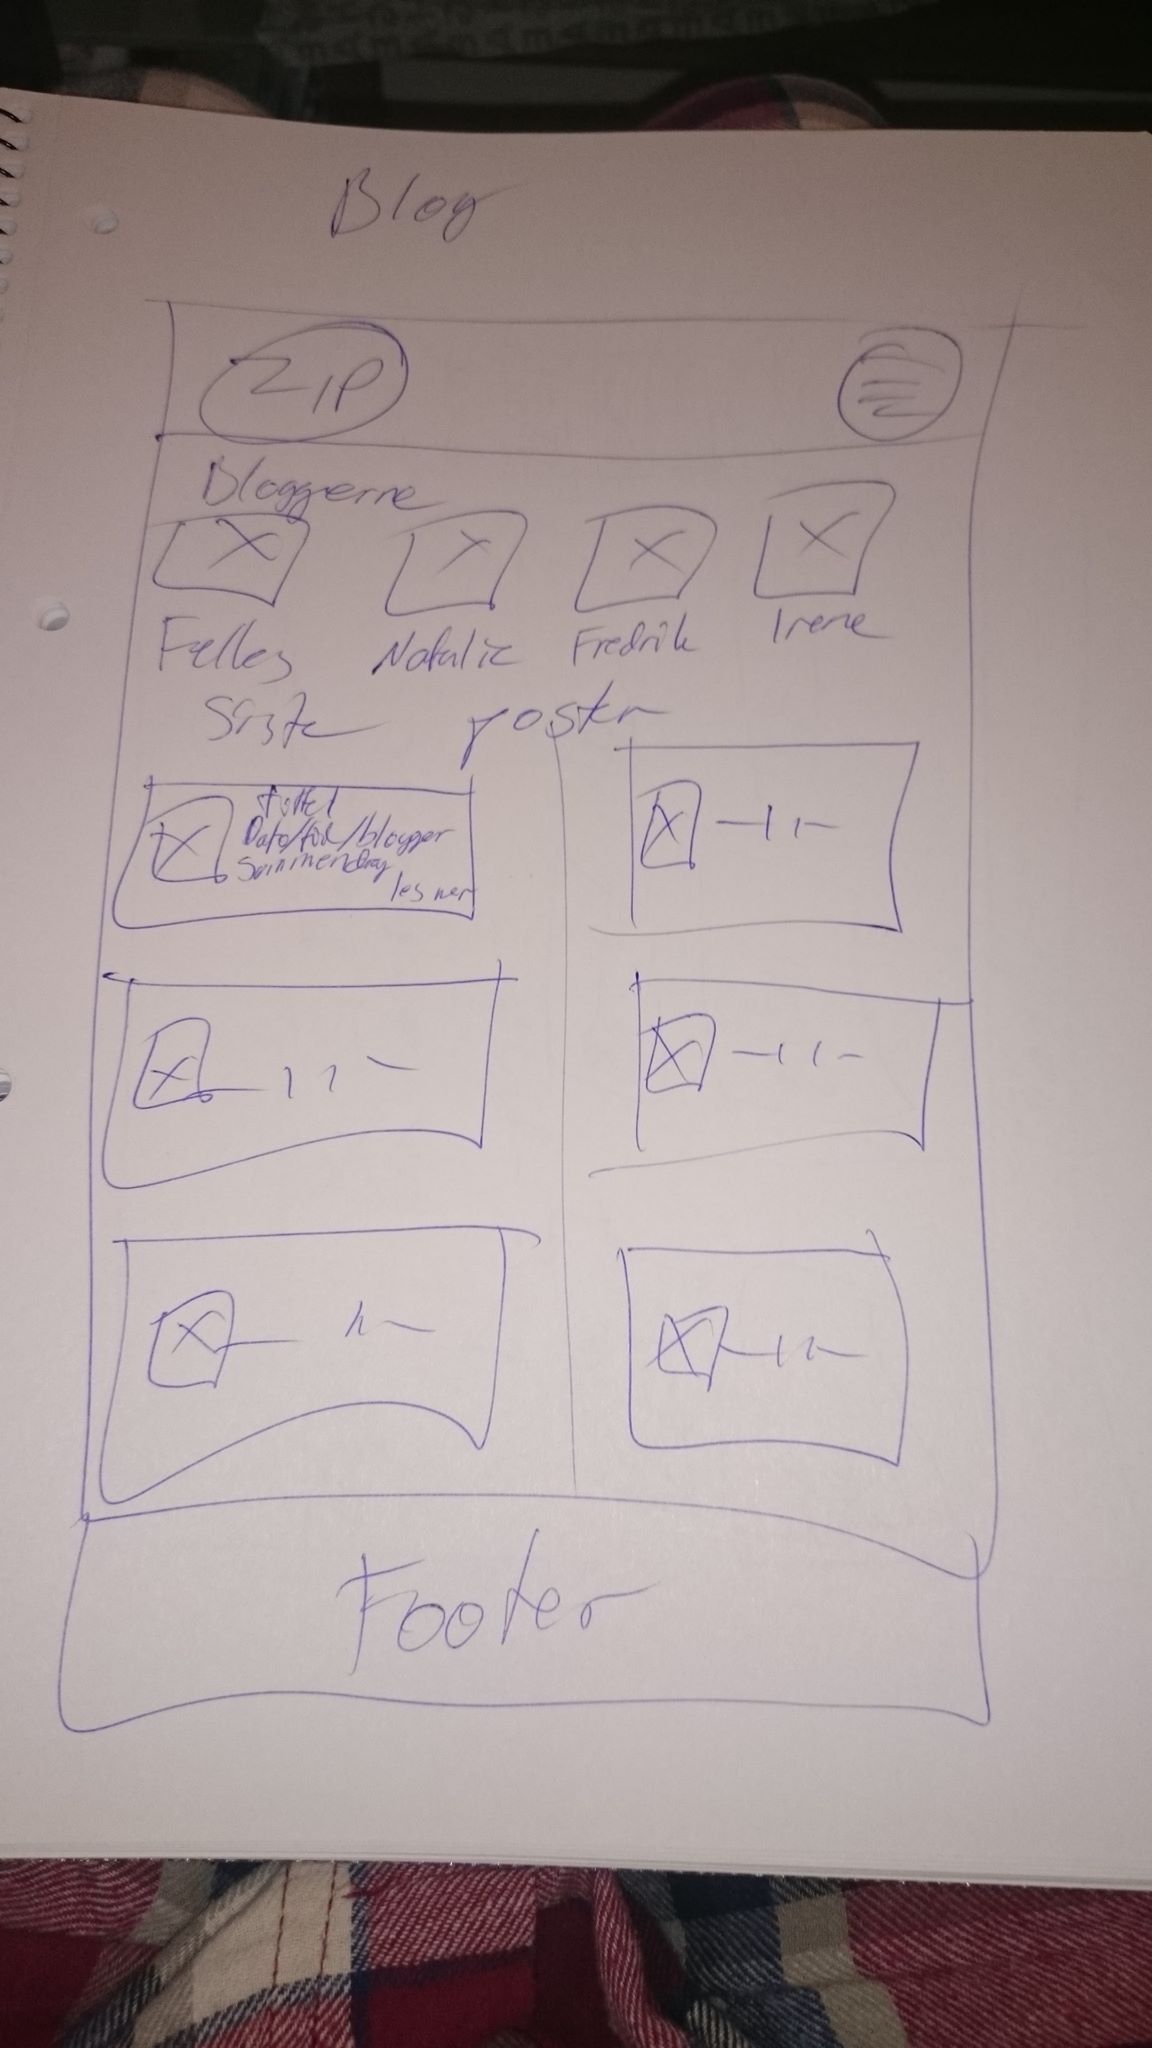 Blog
ZIP
Bloggerne
Felles Natalie Fredrik Irene
Siste poster
Tittel
Dato/tid/blogger
Sammendrag
les mer
Footer